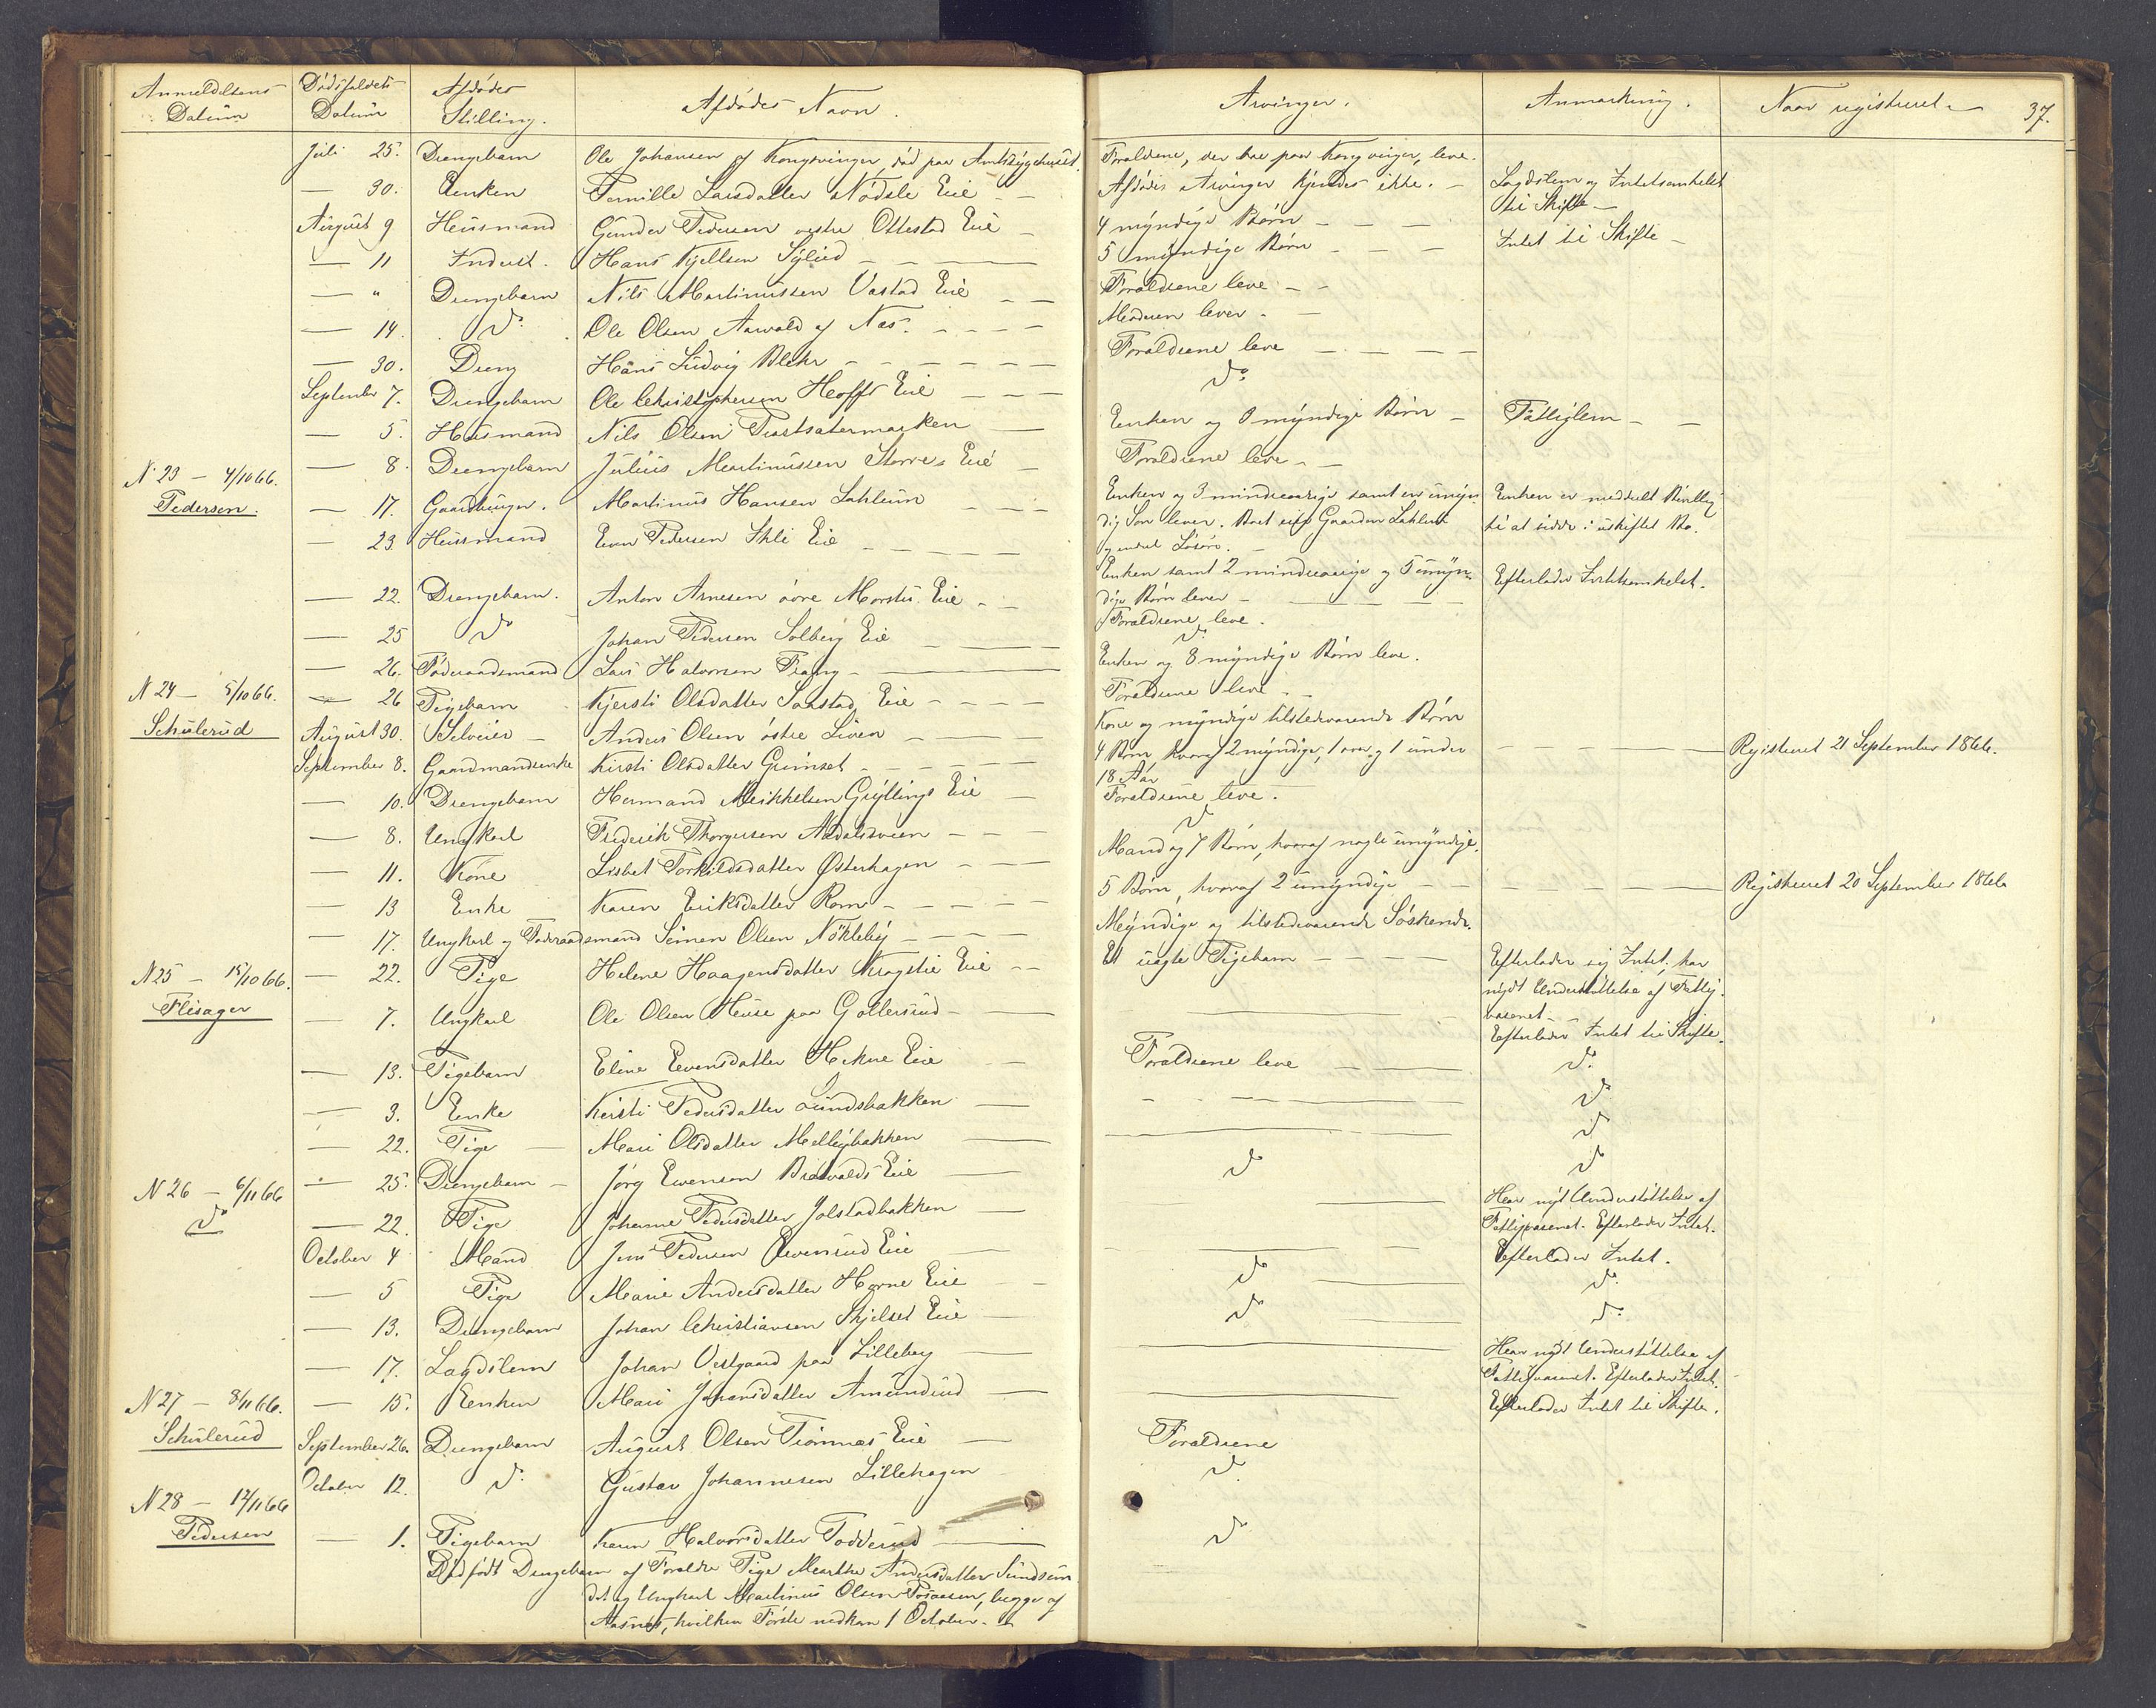 Anmeldelsens Datum
Dødsfaldets Datum
Afdødes Stilling.
Afdødes Navn.
Arvinger.
Anmærkning.
Naar registreret
37.
Juli 25. Drengebarn Ole Johansen af Kongsvinger, død paa Amtssygehuset. Forældrene, der boe paa Kongsvinger, leve.
— 30. Enken Pernille Larsdatter Nødsle Eie Afdødes Arvinger kjendes ikke. Lægdslem og Intetsomhelst til Skifte
August 9 Husmand Gunder Pedersen vestre Ottestad Eie 4 myndige Børn Intet til Skifte
— 11 Inderst. Hans Kjellsen Sylied 5 myndige Børn
— " Drengebarn Nils Martinussen Vastad Eie Forældrene leve
— 14. do Ole Olsen Aarvold af Næs. Moderen lever.
— 30. Dreng Hans Ludvig Blehr Forældrene leve
September 7. Drengebarn Ole Christophersen Hoffs Eie do
— 5. Husmand Nils Olsen Enken og 8 myndige Børn Fattiglem
N 23 — 4/10 66. — 8. Drengebarn Julius Martinussen Storre Eie Forældrene leve
Pedersen. — 17. Gaardbruger. Martinus Hansen Sahlum Enken og 3 mindreaarige samt en umyndig Søn lever. Boet eier Gaarden Sahlum og endel Løsøre. Enken er meddelt Bevilling til at sidde i uskiftet Bo.
— 23 Husmand Even Pedersen Skli Eie Enken samt 2 mindreaarige og 5 umyndige Børn lever Efterlader Intetsomhelst.
— 22. Drengebarn. Anton Arnesen øvre Morstu Eie Forældrene leve.
— 25 do Johan Pedersen Solberg Eie do
— 26. Føderaadsmand Lars Halvorsen Frang Enken og 8 myndige Børn leve.
N 24 — 5/10 66. — 26 Pigebarn Kjersti Olsdatter Sanstad Eie Forældrene leve
Schulerud August 30. Selveier Anders Olsen østre Liven Kone og myndige tilstedeværende Børn
September 8. Gaardmandsenke Kirsti Olsdatter Grimset 4 Børn, hvoraf 2 myndige, 1 over og 1 under 18 Aar Registreret 21 September 1866.
— 10. Drengebarn Hermand Mikkelsen Gryttings Eie Forældrene leve.
— 8. Ungkarl Frederik Thorgersen do
— 11. Kone Lisbet Torkildsdatter Østerhagen Mand og 7 Børn, hvoraf nogle umyndige.
— 13 Enke Karen Eriksdatter Rom 5 Børn, hvoraf 2 umyndige Registreret 20 September 1866
— 17. Ungkarl og Føderaadsmand Simen Olsen Nökleby Myndige og tilstedeværende Søskende.
N 25 — 15/10 66. — 22. Pige Helene Haagensdatter Kragstie Eie Et uægte Pigebarn Efterlader sig Intet, har nydt Understøttelse af Fattigvæsenet
Flisager — 7. Ungkarl Ole Olsen paa Gottersrud Efterlader Intet til Skifte.
— 13. Pigebarn Eline Evensdatter Hekne Eie Forældrene leve do
— 3. Enke Kirsti Pedersdatter Lundsbakken do
— 22. Pige Mari Olsdatter Melbybakken do
N 26 — 6/11 66 — 25. Drengebarn Jörg Evensen Eie do do
do — 22. Pige Johanne Pedersdatter Jolstadbakken Har nydt Understøttelse af Fattigvæsenet. Efterlader Intet.
October 4 Mand Jens Pedersen Evensrud Eie Efterlader Intet.
— 5 Pige Marie Andersdatter Horne Eie do do
— 13. Drengebarn Johan Christiansen Skjelset Eie do do
— 17. Lægdslem Johan Vestgaard paa Lilleberg Har nydt Understøttelse af Fattigvæsenet. Efterlader Intet.
N 27 — 8/11 66. — 15. Enken Mari Johansdatter Amundrud Efterlader Intet til Skifte.
Schulerud September 26. Drengebarn August Olsen Trönnæs Eie Forældrene
October 12. do Gustav Johannesen Lillehagen do
N 28 — 12/11 66
Pedersen — 1. Pigebarn Karen Halvorsdatter Todderud do
Dødfødt Drengebarn af Forældre Pige Marthe Andersdatter
og Ungkarl Martinus Olsen begge af
Aasnes, hvilken Første nedkom 1 October.